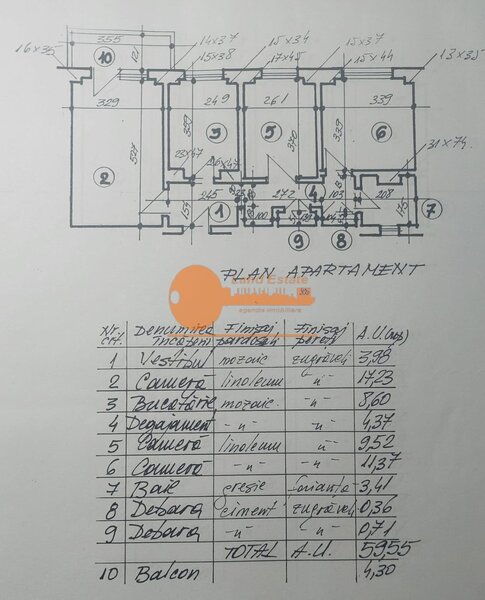 355
16x35
121
10
14x37
15x38
15x34
17x45
15x37
15x44
13x35
329
249
261
339
2
3
5
6
527
329
370
339
31x74
23x47
16x47
245
1
272
4
103
208
7
155
100
9
8
175
PLAN APARTAMENT
Land Estate
agentie imobiliara
Nr. crt. Denumirea incaperii Finisaj pardoseli Finisaj pereti A.U.(mp)
1 Vestibul mozaic zugraveli 3,98
2 Cameră linoleum -"- 17,23
3 Bucătărie mozaic -"- 8,60
4 Degajament -"- -"- 4,37
5 Cameră linoleum -"- 9,52
6 Cameră -"- -"- 11,37
7 Baie gresie faianta 3,41
8 Debara ciment zugraveli 0,36
9 Debara -"- -"- 0,71
TOTAL A.U. 59,55
10 Balcon 4,30